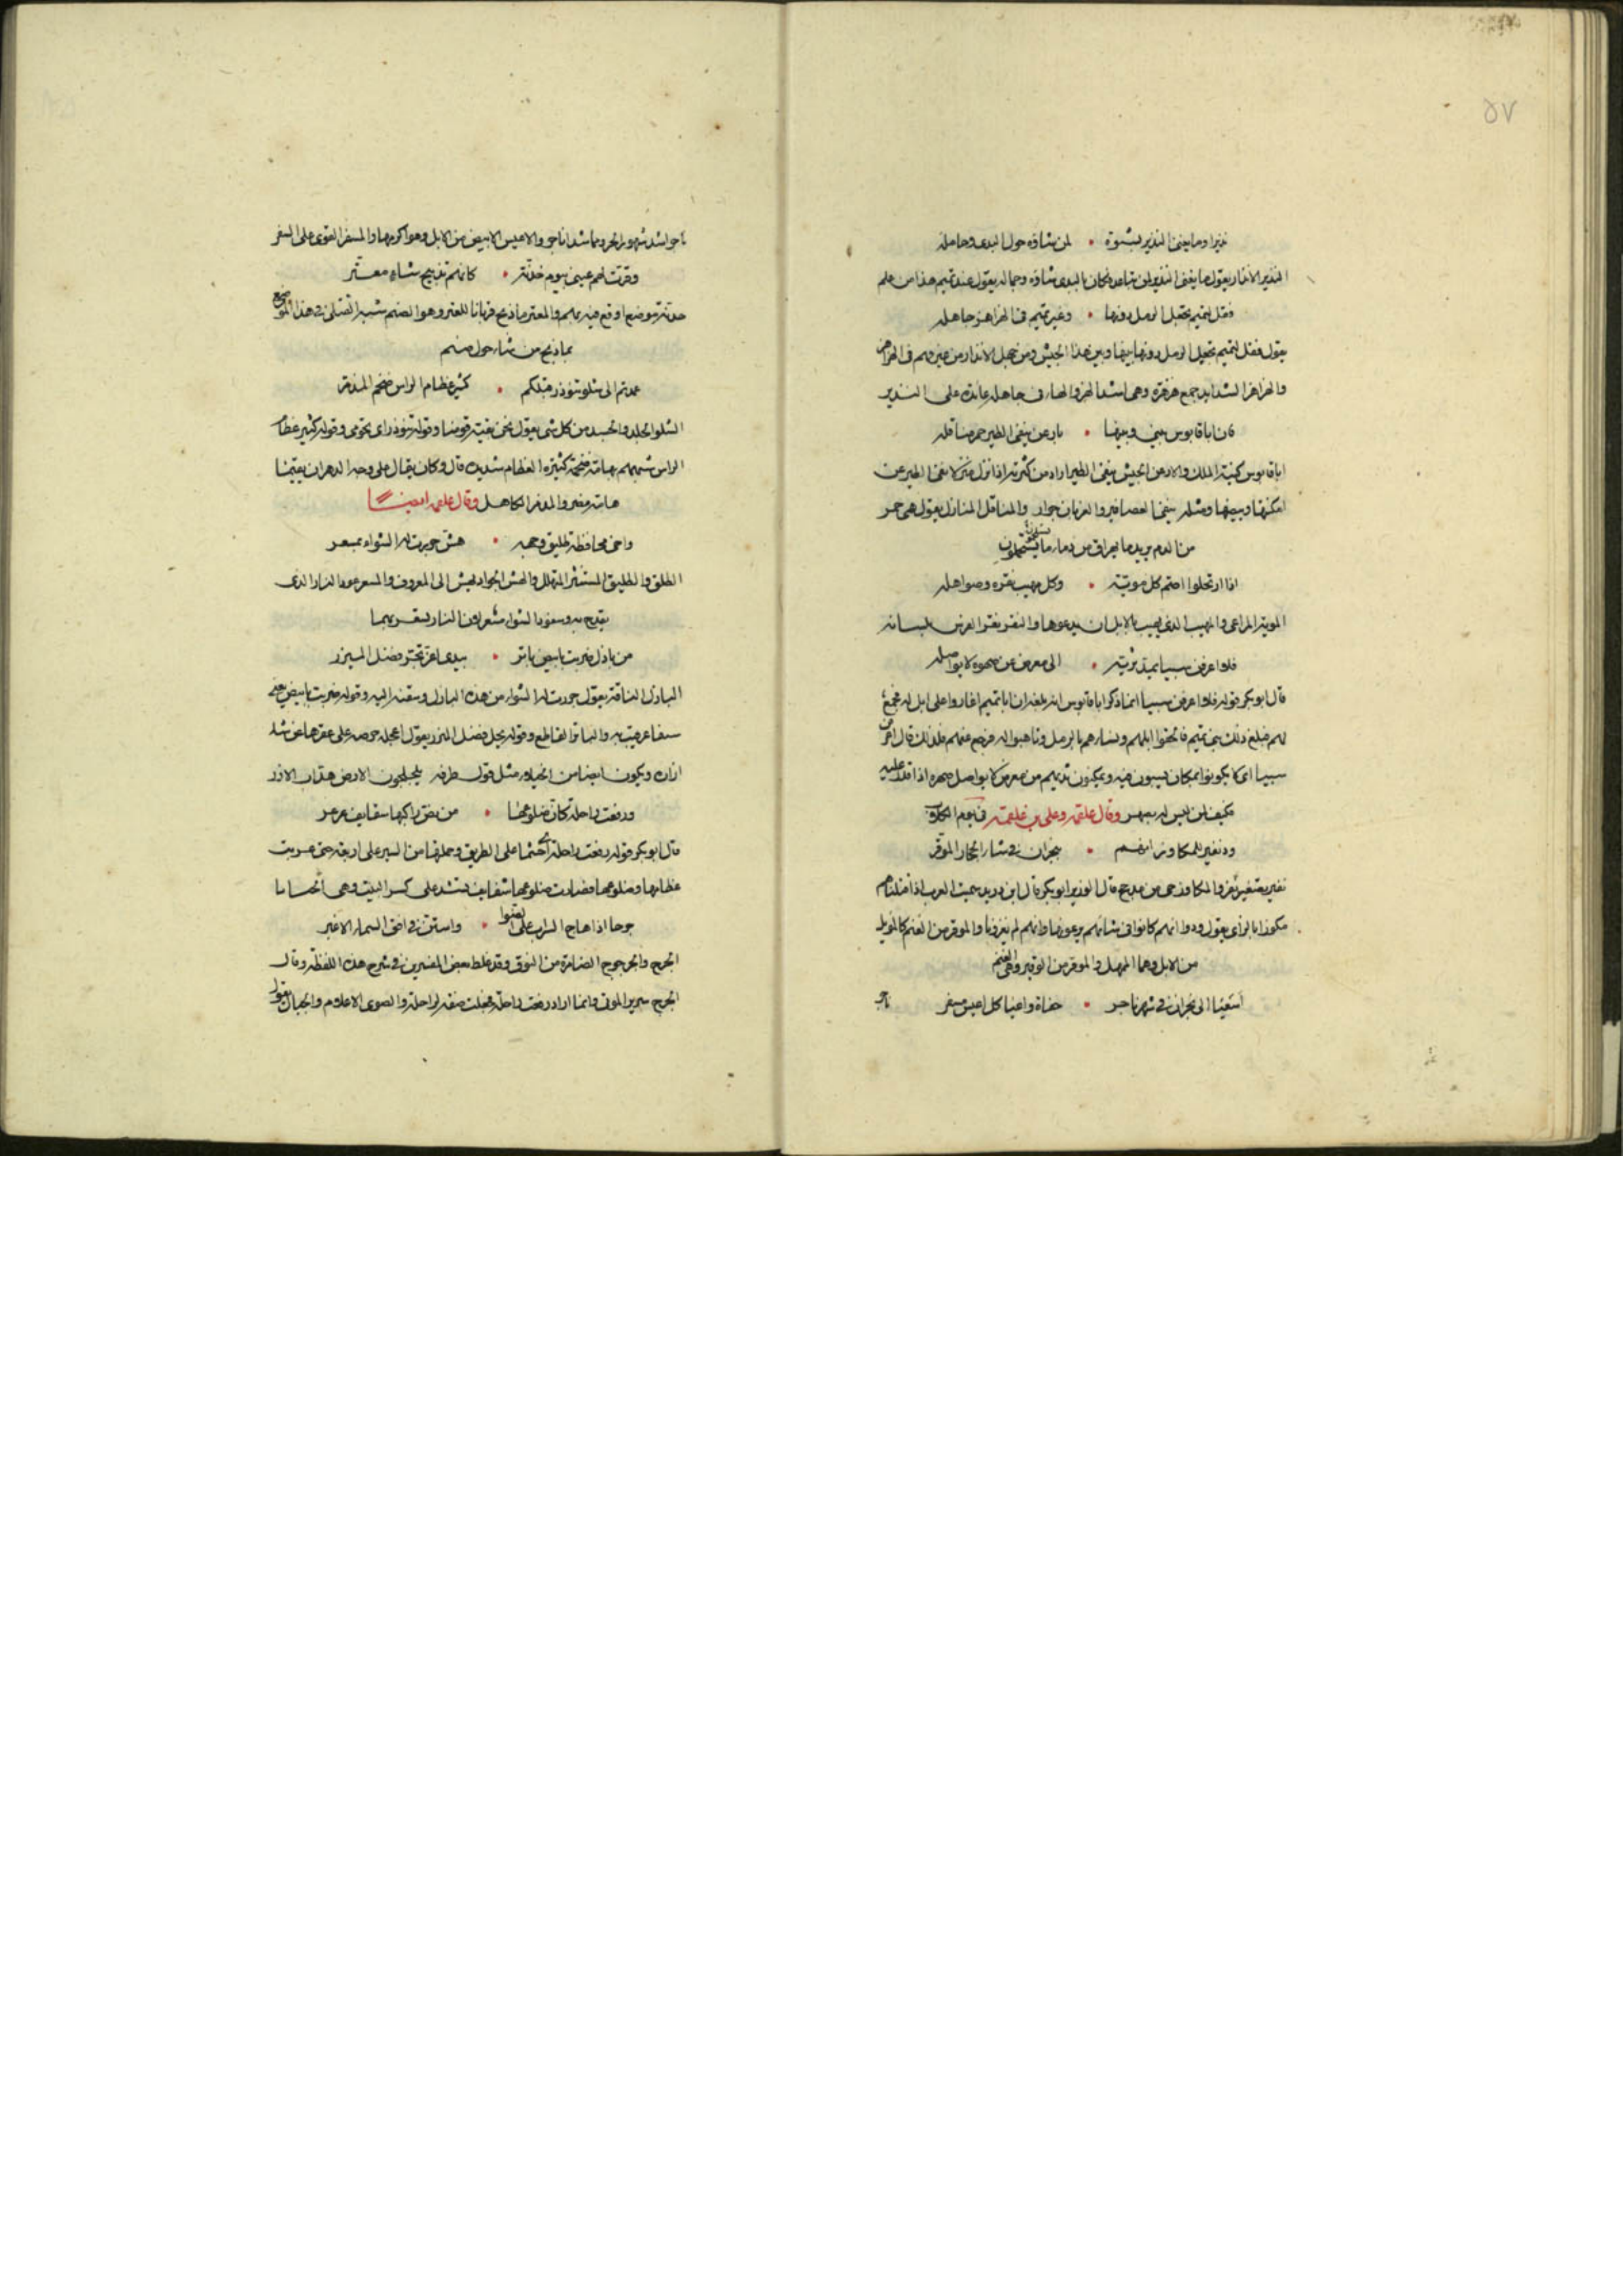 ٥٧
نذيرا وما يغني النذير بشبوة • لمن شاؤه حول البدي وحامله
النذير الانذار يقول ما يغني النذير لمن شاءه وكان بالبدي شاؤه وجماله يقول عند تميم هذا من علم
فقل لتميم تجعل الرمل دونها • وغير تميم في الهزاهز جاهله
يقول فقل لتميم تجعل الرمل دونها بينها وبين هذا الجيش ومن جهل الانذار من غيرهم في الهزاهز
والهزاهز الشدايد جمع هزهزة وهي اشد الهز والهاء في جاهله عائدة على النذير
فان ابا قابوس بيني وبينها • بارعن ينفي الطير حمر مناقله
ابا قابوس كنية الملك والارعن الجيش ينفي الطير اراد من كثرته اذا نزل منزلا نفى الطير عن
امكنتها وبيضها ومثله ينفي العصافير والغربان جراد والمناقل المنازل يقول هي حمر
من الدم يريد ما يهراق من دماء ما
اذا ارتحلوا اصم كل مؤيه • وكل مهيب نقره وصواهله
المؤيه الراعي والمهيب الذي يهيب بالابل ان يدعوها والنقر نقر الفرس بلسانه
فلا اعرفن سبيا تمد ثديه • الى معرض عن صهره لا يواصله
قال ابو بكر قوله فلا اعرفن سبيا انما ذكر ابا قابوس انه بلغه ان ابا تميم اغاروا على ابل له فجمع
لهم فبلغ ذلك بني تميم فالحقوا ابلهم ونساءهم بالرمل وتاهبوا له فرجع عنهم فلذلك قال اعرفن
سبيا اي لا يكونوا بمكان يسبون فيه ويمكنون ثديهم من معرض لا يواصل صهره اذا قدر عليه
فكيف لمن ليس له بصهر وقال علقمة وعلي بن علقمة في يوم الكلاب
ود نفير للمكاور انهم • بنجران في شاء الحجاز الموقر
نفير تصغير نفر والمكاور حي من مذحج قال الوزير ابو بكر قال ابن دريد سميت العرب
مكوزا بالزاي يقول ودوا انهم كانوا في شائهم يرعونها وانهم لم يغزونا والموقر من الغنم كالمؤبل
من الابل وهما المهمل والموقر من الوقير وهي الغنم
اسعيا الى نجران في شهر ناجر • حفاة واعيا كل اعيس مسفر
ناجر اشد شهور الحر وهما شهرا ناجر والاعيس الابيض من الابل وهو اكرمها والمسفر القوي على السفر
وقرت لهم عيني بيوم حذنة • كانهم تذبيح شاء معتر
حذنة موضع اوقع فيه بهم والمعتر ما ذبح قربانا للعتر وهو الصنم شبه القتلى في هذا الموضع
بما ذبح من شاء حول صنم
عمدتم الى شلو تنوذر قبلكم • كثير عظام الراس ضخم المذمر
الشلو الجلد والجسد من كل شي يقول نحن بقية قومنا وقوله تنوذر اي تحومي وقوله كثير عظام
الراس شبههم بهامة ضخمة كثيرة العظام شديدة قال وكان يقال على وجه الدهر ان بقيتنا
هامة مضر والمذمر الكاهل وقال علقمة ايضا
واخي محافظة طليق وجهه • هش جررت له الشواء بمسعر
الطلق والطليق المستبشر المتهلل والهش الجواد يهش الى المعروف والمسعر عود النار الذي
يقدح به وسفود الشواء مسعر لان النار يسعر بهما
من بازل ضربت بابيض باتر • بيدي اغر يجر فضل الميزر
البازل الناقة يقول جررت له الشواء من هذه البازل وسقته اليه وقوله ضربت بابيض يعني
سيفا عرقبت به والباتر القاطع وقوله يجر فضل الميزر يقول اعجله حرصه على عقرها عن شد
ازاره ويكون ايضا من الخيلاء مثل قول طرفة يلحفون الارض هداب الازر
ورفعت راحلة كان ضلوعها • من نص راكبها سقايف عرعر
قال ابو بكر قوله رفعت راحلة اي حثها على الطريق وحملها من السير على ارفعه حتى عريت
عظامها وضلوعها فصارت ضلوعها كسقايف تشد على كسر البيت وهي الخسايا
حرجا اذا هاج السراب على الصوى • واستن في افق السماء الاغبر
الحرج والحرجوج الضامرة من النوق وقد غلط بعض المفسرين في شرح هذه اللفظة وقال
الحرج سرير الموتى وانما اراد رفعت راحلة فجعلت صفة لراحلة والصوى الاعلام والجبال يقول